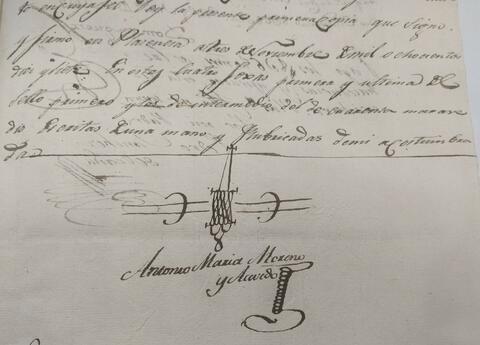 fe en cuya fee doy la presente primera copia que signo
y firmo en Plasencia a tres de Noviembre de mil ochocientos
diez y siete. En estas cuatro foxas primera y ultima del
sello primero y las de intermedio del de cuarenta marave
dis Escritas de una mano y Rubricadas de mi acostumbra
da
Antonio Maria Moreno
y Acevedo